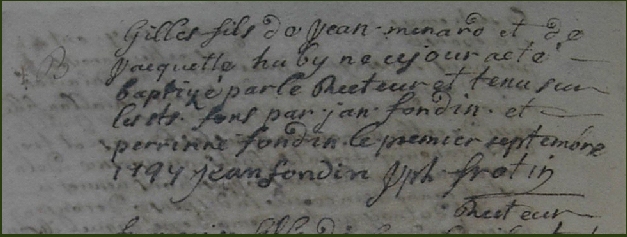 B
Gilles fils de jean menard et de
jacquette huby ne ce jour a eté
baptizé par le Recteur et tenu sur
lesdts fons par jan fondin et
perrinne fondin le premier septembre
jean fondin Jph frotin
Recteur